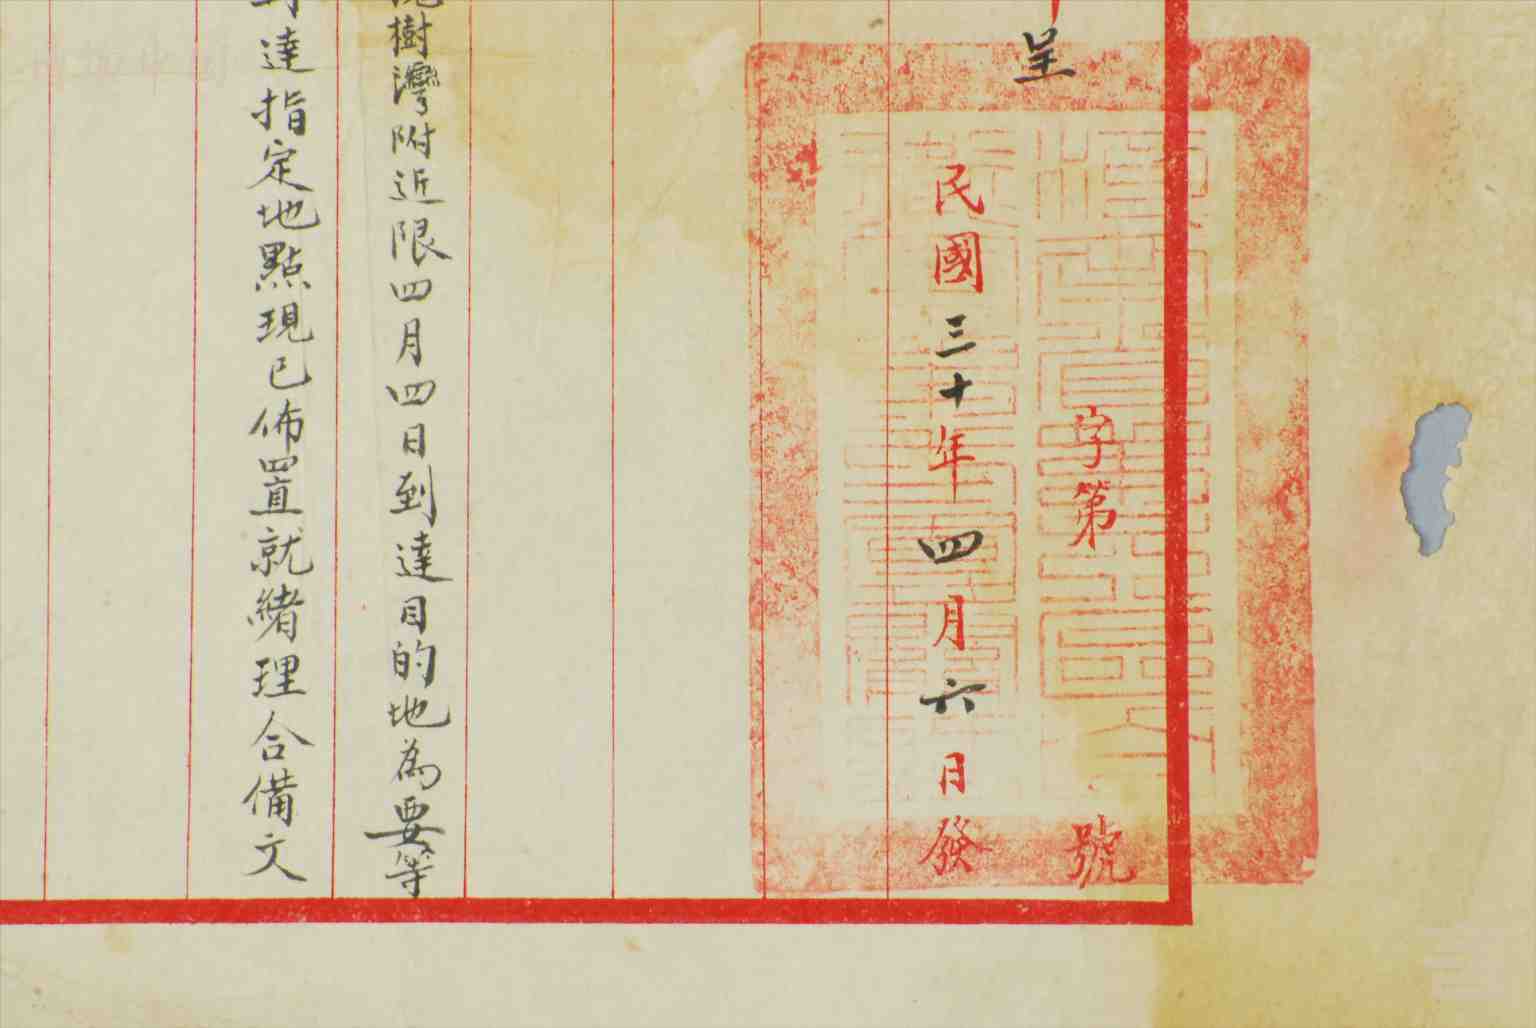 呈
字第號
民國三十年四月六日發
樹灣附近限四月四日到達目的地為要等
達指定地點現已佈置就緒理合備文